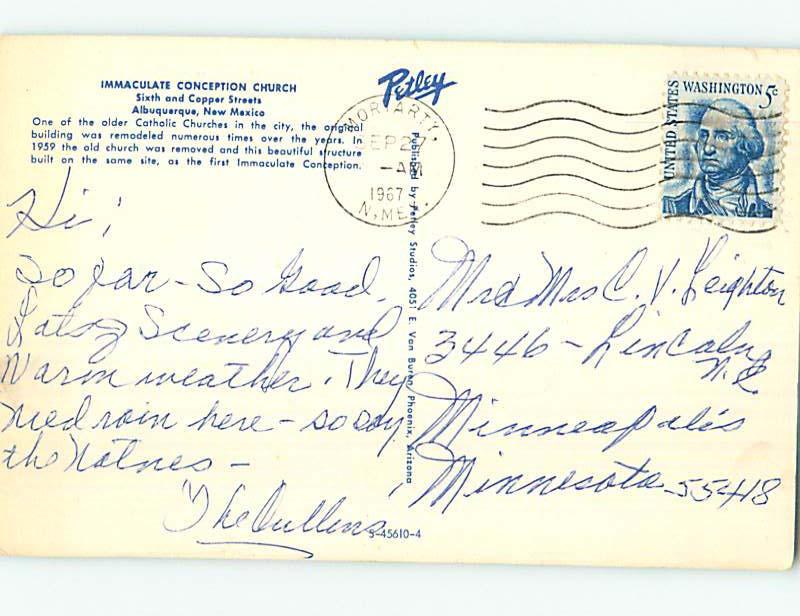 IMMACULATE CONCEPTION CHURCH
Sixth and Copper Streets
Albuquerque, New Mexico
One of the older Catholic Churches in the city, the original
building was remodeled numerous times over the years. In
1959 the old church was removed and this beautiful structure
built on the same site, as the first Immaculate Conception.
Petley
MORIARTY,
SEP 27
-AM
1967
N.MEX.
UNITED STATES
WASHINGTON 5c
Published by Petley Studios, 4051 E. Van Buren, Phoenix, Arizona
Hi!
So far - So Good.
Lots of Scenery and
Warm weather. They
need rain here - so say
the Natives -
"The Cullens"
Mr & Mrs C. V. Leighton
3446 - Lincoln
N.E.
Minneapolis
Minnesota - 55418
S-45610-4